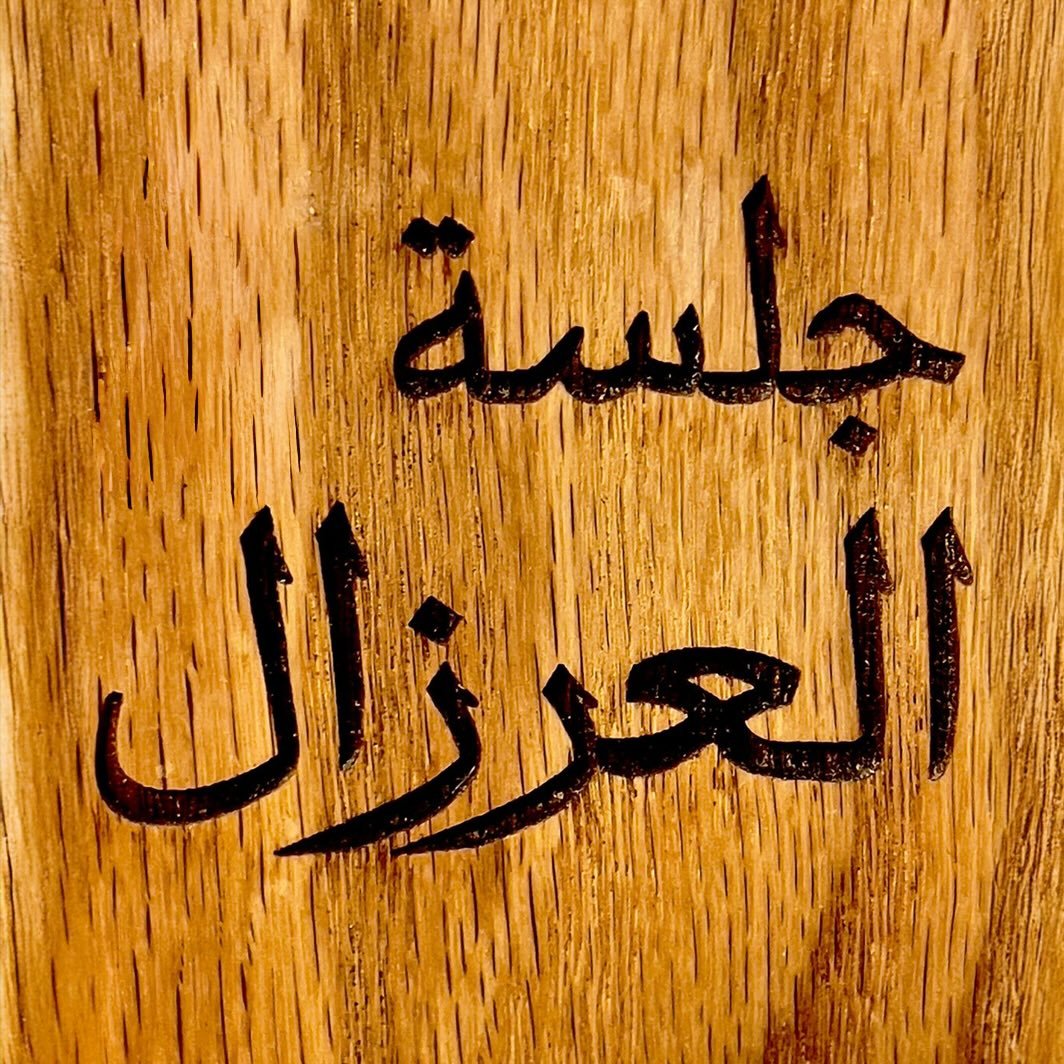 جلسة
العرزال